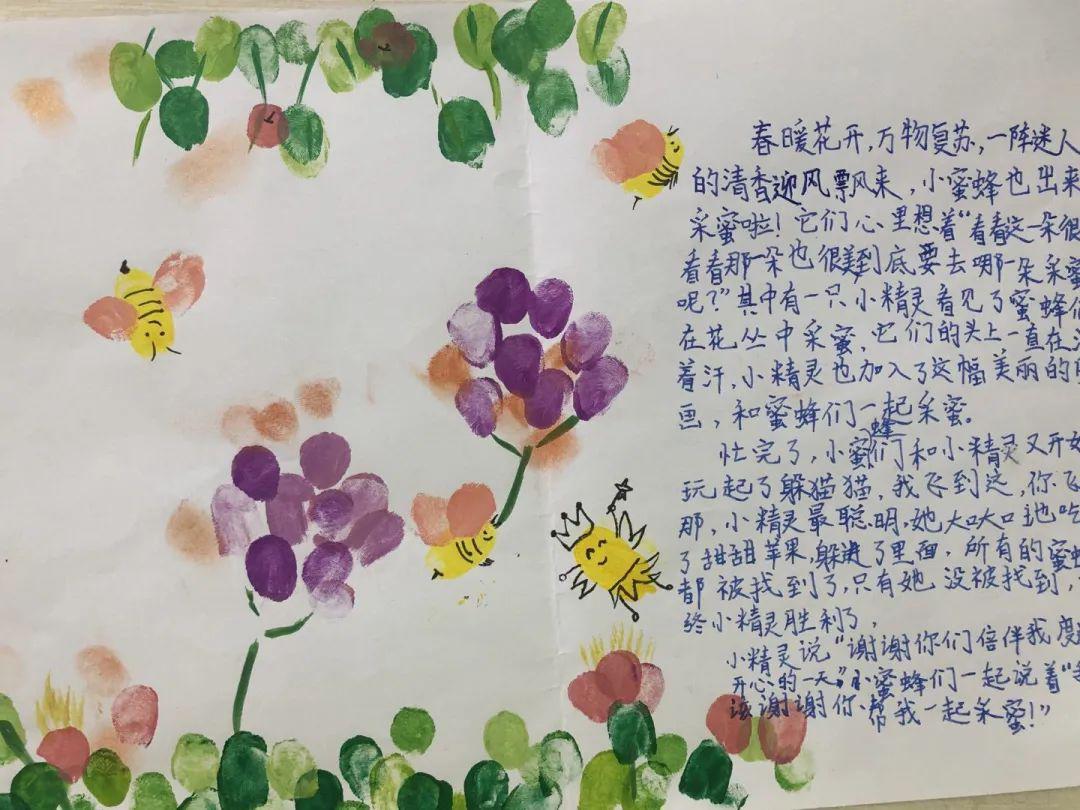 春暖花开,万物复苏,一阵迷人
的清香迎风飘风来,小蜜蜂也出来
采蜜啦!它们心里想着“看看这一朵很
看看那一朵也很美到底要去哪一朵采蜜
呢?”其中有一只小精灵看见了蜜蜂们
在花丛中采蜜,它们的头上一直在
着汗,小精灵也加入了这幅美丽的
画,和蜜蜂们一起采蜜。
忙完了,小蜜蜂们和小精灵又开始
玩起了躲猫猫,我飞到这,你飞
那,小精灵最聪明,她大口大口地吃
了甜甜苹果,躲进了里面,所有的蜜蜂
都被找到了,只有她没被找到,
终小精灵胜利了,
小精灵说“谢谢你们倍伴我度
开心的一天”小蜜蜂们一起说着“
该谢谢你帮我一起采蜜!”